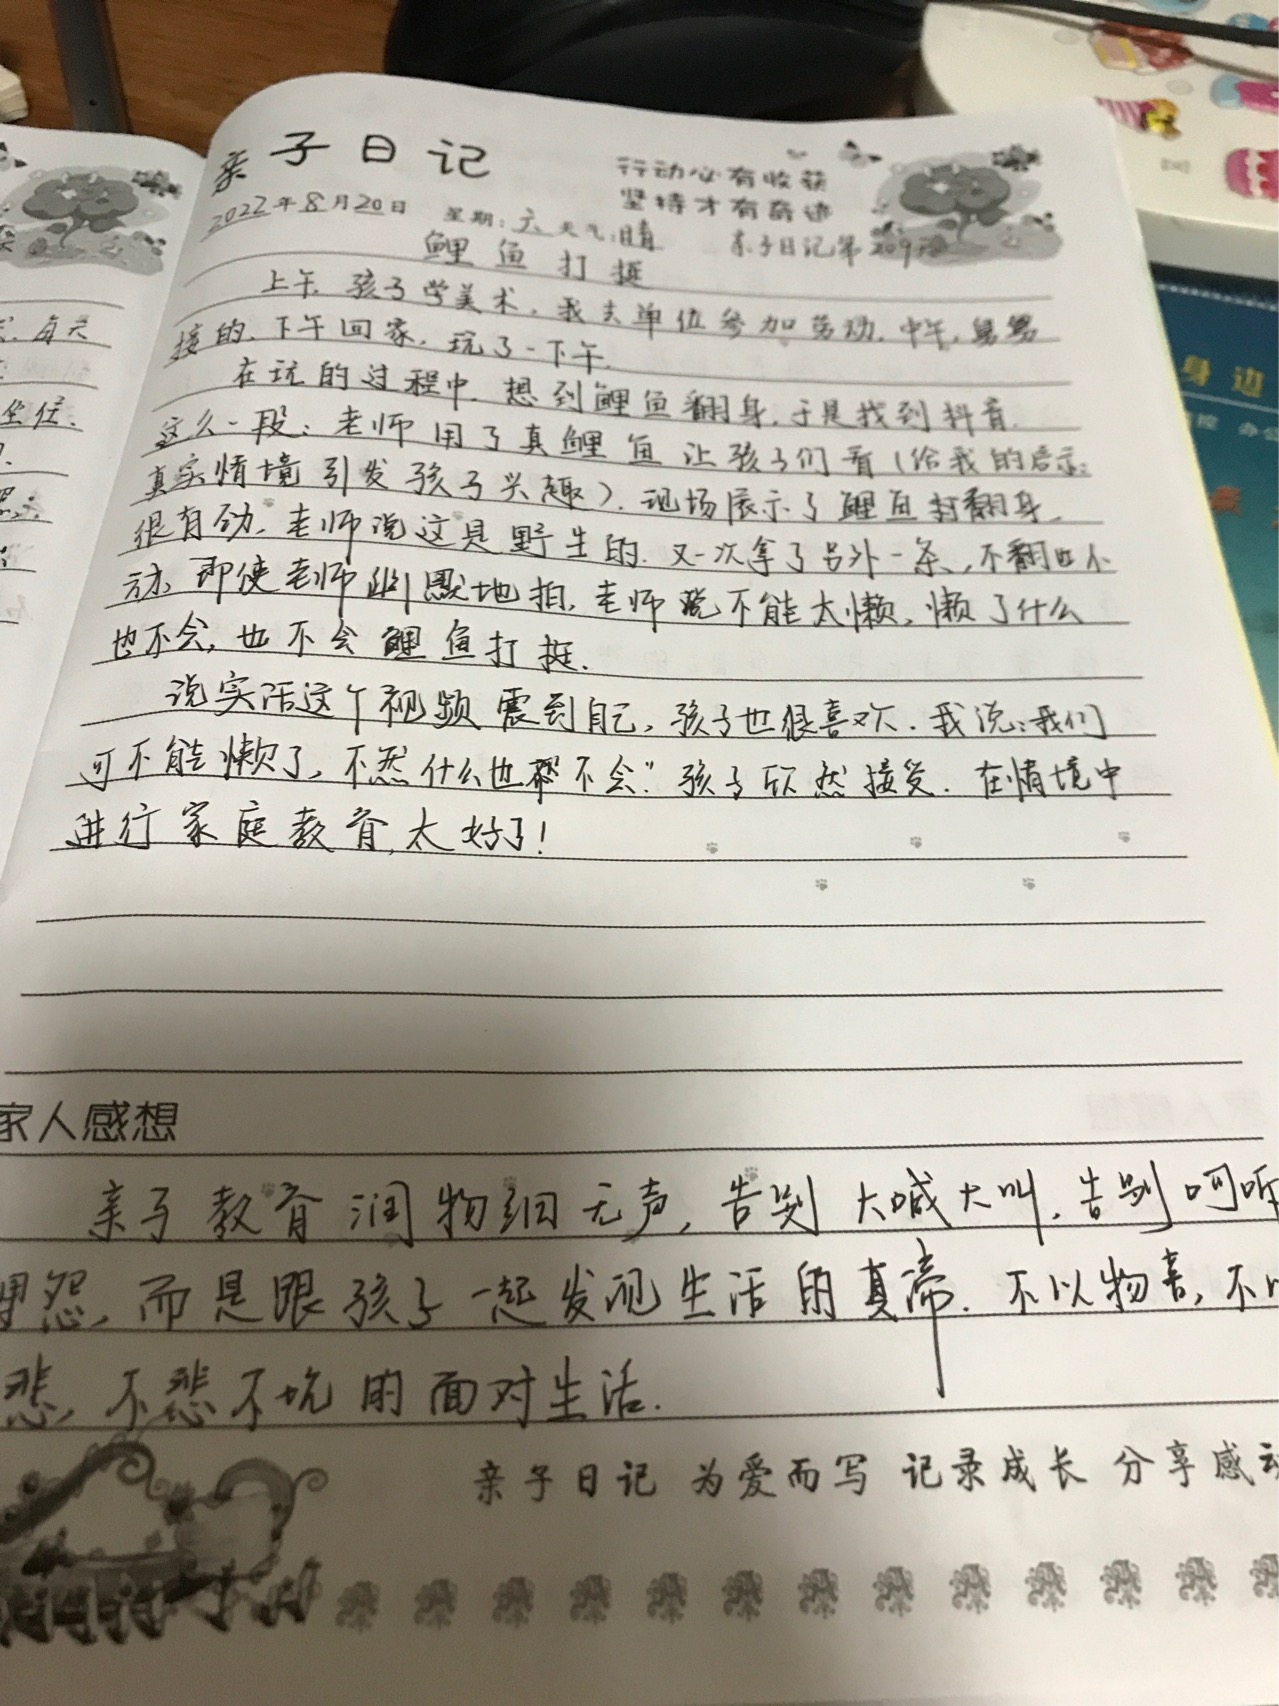 亲子日记
行动必有收获
坚持才有奇迹
2022年8月20日 星期:六 天气:晴 亲子日记第209
鲤鱼打挺
上午,孩子学美术,我去单位参加劳动,中午,舅舅
接的,下午回家,玩了一下午.
在玩的过程中,想到鲤鱼翻身,于是找到抖音
这么一段:老师用了真鲤鱼让孩子们看(给我的启示:
真实情境引发孩子兴趣).现场展示了鲤鱼打翻身,
很有劲,老师说这是野生的.又一次拿了另外一条,不翻也不
动,即使老师幽默地拍,老师说不能太懒,懒了什么
也不会,也不会鲤鱼打挺.
说实话这个视频震到自己,孩子也很喜欢.我说:我们
可不能懒了,不然什么也都不会"孩子欣然接受.在情境中
进行家庭教育,太好了!
家人感想
亲子教育润物细无声,告别大喊大叫,告别呵斥
怨,而是跟孩子一起发现生活的真谛.不以物喜,不以
悲,不悲不坑的面对生活.
亲子日记 为爱而写 记录成长 分享感动
每天
坐位.
身边
办公